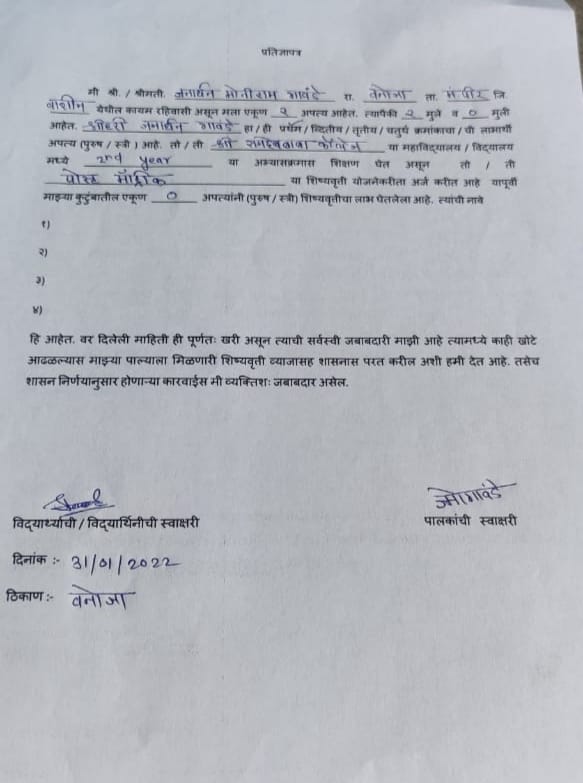 प्रतिज्ञापत्र
मी श्री. / श्रीमती. जनार्धन मोतीराम गावंडे रा. वनोजा ता. मं.पीर जि.
वाशीम येथील कायम रहिवासी असून मला एकूण २ अपत्य आहेत. त्यापैकी २ मुले व ० मुली
आहेत. जनार्धन गावंडे हा / ही प्रथम / व्दितीय / तृतीय / चतुर्थ क्रमांकाचा / ची लाभार्थी
अपत्य (पुरुष / स्त्री ) आहे. तो / ती श्री रामदेवबाबा कॉलेज या महाविद्यालय / विद्यालय
मध्ये 2nd year या अभ्यासक्रमास शिक्षण घेत असून तो / ती
पोस्ट मॅट्रीक या शिष्यवृत्ती योजनेकरीता अर्ज करीत आहे यापूर्वी
माझ्या कुटुंबातील एकूण ० अपत्यांनी (पुरुष / स्त्री) शिष्यवृत्तीचा लाभ घेतलेला आहे. त्यांची नावे
१)
२)
३)
४)
हि आहेत. वर दिलेली माहिती ही पूर्णतः खरी असून त्याची सर्वस्वी जबाबदारी माझी आहे त्यामध्ये काही खोटे
आढळल्यास माझ्या पाल्याला मिळणारी शिष्यवृती व्याजासह शासनास परत करील अशी हमी देत आहे. तसेच
शासन निर्णयानुसार होणाऱ्या कारवाईस मी व्यक्तिशः जबाबदार असेल.
ज.मो.गावंडे
विद्यार्थ्याची / विद्यार्थिनीची स्वाक्षरी पालकांची स्वाक्षरी
दिनांक :- 31/01/2022
ठिकाण :- वनोजा